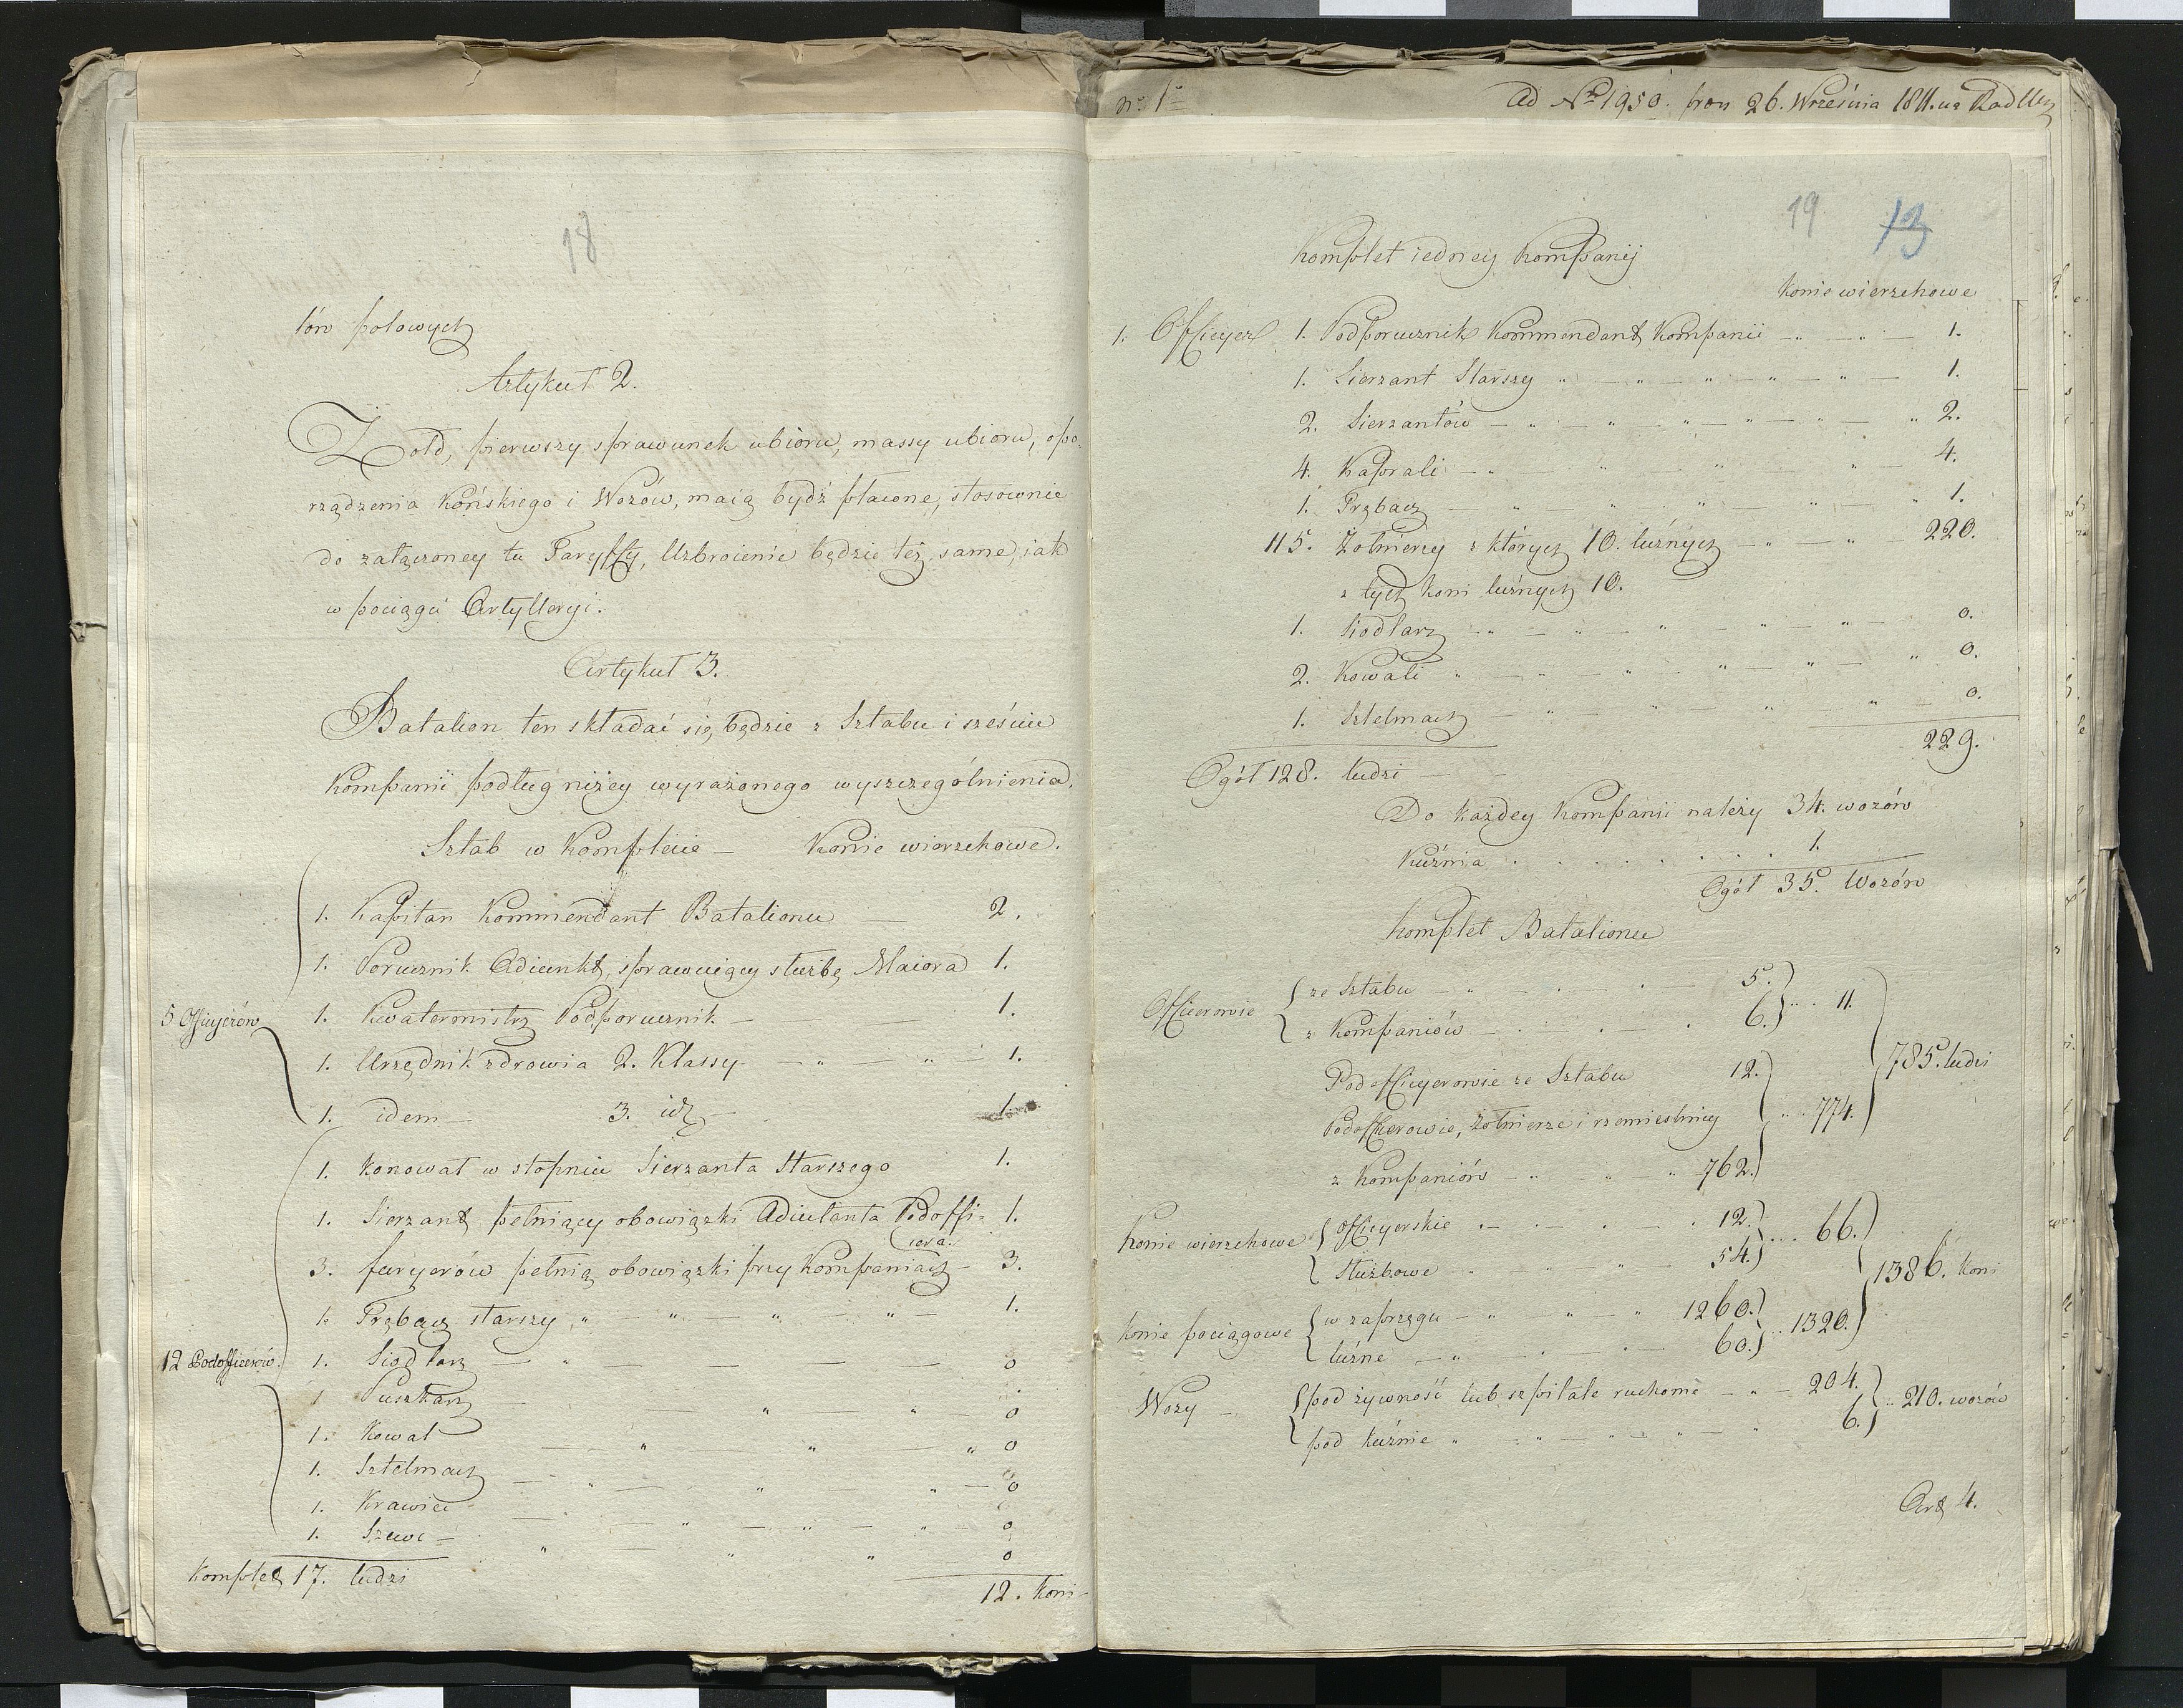 18
łów polowych
Artykuł 2.
Żołd, pierwszy sprawunek ubioru, massy ubioru, opo-
rządzenia Końskiego i Wozów, maią bydź płacone, stosownie
do załączoney tu Taryffy, Uzbroienie będzie też same, iak
w pociągu Artylleryi.
Artykuł 3.
Batalion ten składać się będzie z Sztabu i sześciu
Kompanii podług niżey wyrażonego wyszczególnienia.
Sztab w Komplecie — Konie wierzchowe.
1. Kapitan Kommendant Batalionu — 2.
1. Porucznik Adiunkt, sprawuiący służbę Maiora 1.
5 Officyerów 1. Kwatermistrz Podporucznik — 1.
1. Urzędnik zdrowia 2. Klassy — " — " — 1.
1. idem — 3. id — 1.
1. Konował w stopniu Sierzanta Starszego 1.
1. Sierzant pełniący obowiązki Adiutanta Podoffi- 1.
cera.
3. furyerów pełnią obowiązki przy Kompaniach — 3.
1. Trębacz starszy " — " — " — " — 1.
12 Podofficerów. 1. Siodlarz — " — — — 0
1 Puszkarz — " — " — 0
1. Kowal — " — " — " 0
1. Sztelmach — " — " — " — 0
1. Krawiec — " — " — " — 0
1. Szewc — " " " 0
Komplet 17. ludzi 12. Koni
No 1o
Ad No 1950. 26. Września 1811.
19 13
Komplet iedney Kompanij
Konie wierzchowe
1. Officyer 1. Podporucznik Kommendant Kompanii — " — " — 1.
1. Sierzant Starszy " — " — " — " — " — 1.
2. Sierzantów — " — " — " — " — " 2.
4. Kaprali — " — " — " — " — 4.
1. Trębacz — " — " — " — " — " 1.
115. Żołnierzy z których 10. luźnych — " — " — 220.
z tych koni luźnych 10.
1. Siodlarz — " — " — " — " — " — 0.
2. Kowali " — " — " — " — " — " 0.
1. Sztelmach — " — " — " — " — 0.
229.
Ogół 128. ludzi —
Do każdey Kompanii należy 34. wozów
Kuźnia . . . . . . . 1.
Ogół 35. Wozów
Komplet Batalionu
Officerowie ze Sztabu — " — . — . — 5.
z Kompaniów — . — . — . 6. " . 11.
Podofficyerowie ze Sztabu 12.
785. ludzi
Podofficerowie, żołnierze i rzemieslnicy " . 774.
z Kompaniów — " — " — " 762.
Konie wierzchowe Officyerskie . — . — . — . 12. ... 66.
Służbowe . — " — " — 54.
1386. Koni
Konie pociągowe w zaprzęgu — " — " — " 1260. .. 1320.
luźne — " — . — . — 60.
Wozy — pod żywność lub szpitale ruchome — " — 204. " 210. wozów
pod kuźnie " — " — " — " — " 6.
Art 4.